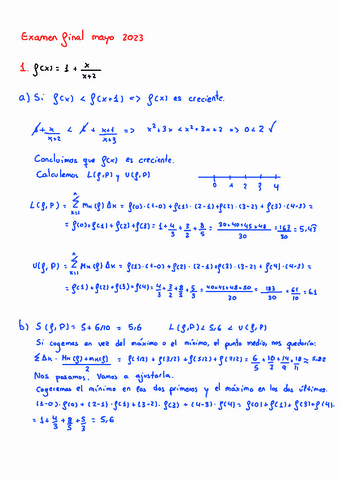 Examen final mayo 2023
1. f(x) = 1 + x/(x+2)
a) Si f(x) < f(x+1) => f(x) es creciente.
1 + x/(x+2) < 1 + (x+1)/(x+3) => x²+3x < x²+3x+2 => 0<2 ✓
Concluimos que f(x) es creciente.
Calculemos L(f,P) y U(f,P)
0 1 2 3 4
L(f,P) = Σ mₖ(f) Δx = f(0)·(1-0) + f(1)·(2-1) + f(2)·(3-2) + f(3)·(4-3) =
= f(0)+f(1)+f(2)+f(3) = 1 + 4/3 + 3/2 + 8/5 = (30+40+45+48)/30 = 163/30 = 5,43
U(f,P) = Σ Mₖ(f) Δx = f(1)·(1-0) + f(2)·(2-1) + f(3)·(3-2) + f(4)·(4-3) =
= f(1)+f(2)+f(3)+f(4) = 4/3 + 3/2 + 8/5 + 5/3 = (40+45+48+50)/30 = 183/30 = 61/10 = 6,1
b) S(f,P) = 5+6/10 = 5,6 L(f,P) < 5,6 < U(f,P)
Si cogemos en vez del máximo o el mínimo, el punto medio, nos quedaría:
= f(1/2) + f(3/2) + f(5/2) + f(7/2) = 6/5 + 10/7 + 14/9 + 18/11 ≈ 5,82
Nos pasamos. Vamos a ajustarla.
Cogeremos el mínimo en los dos primeros y el máximo en los dos últimos.
(1-0)·f(0) + (2-1)·f(1) + (3-2)·f(3) + (4-3)·f(4) = f(0)+f(1)+f(3)+f(4) =
= 1 + 4/3 + 8/5 + 5/3 = 5,6